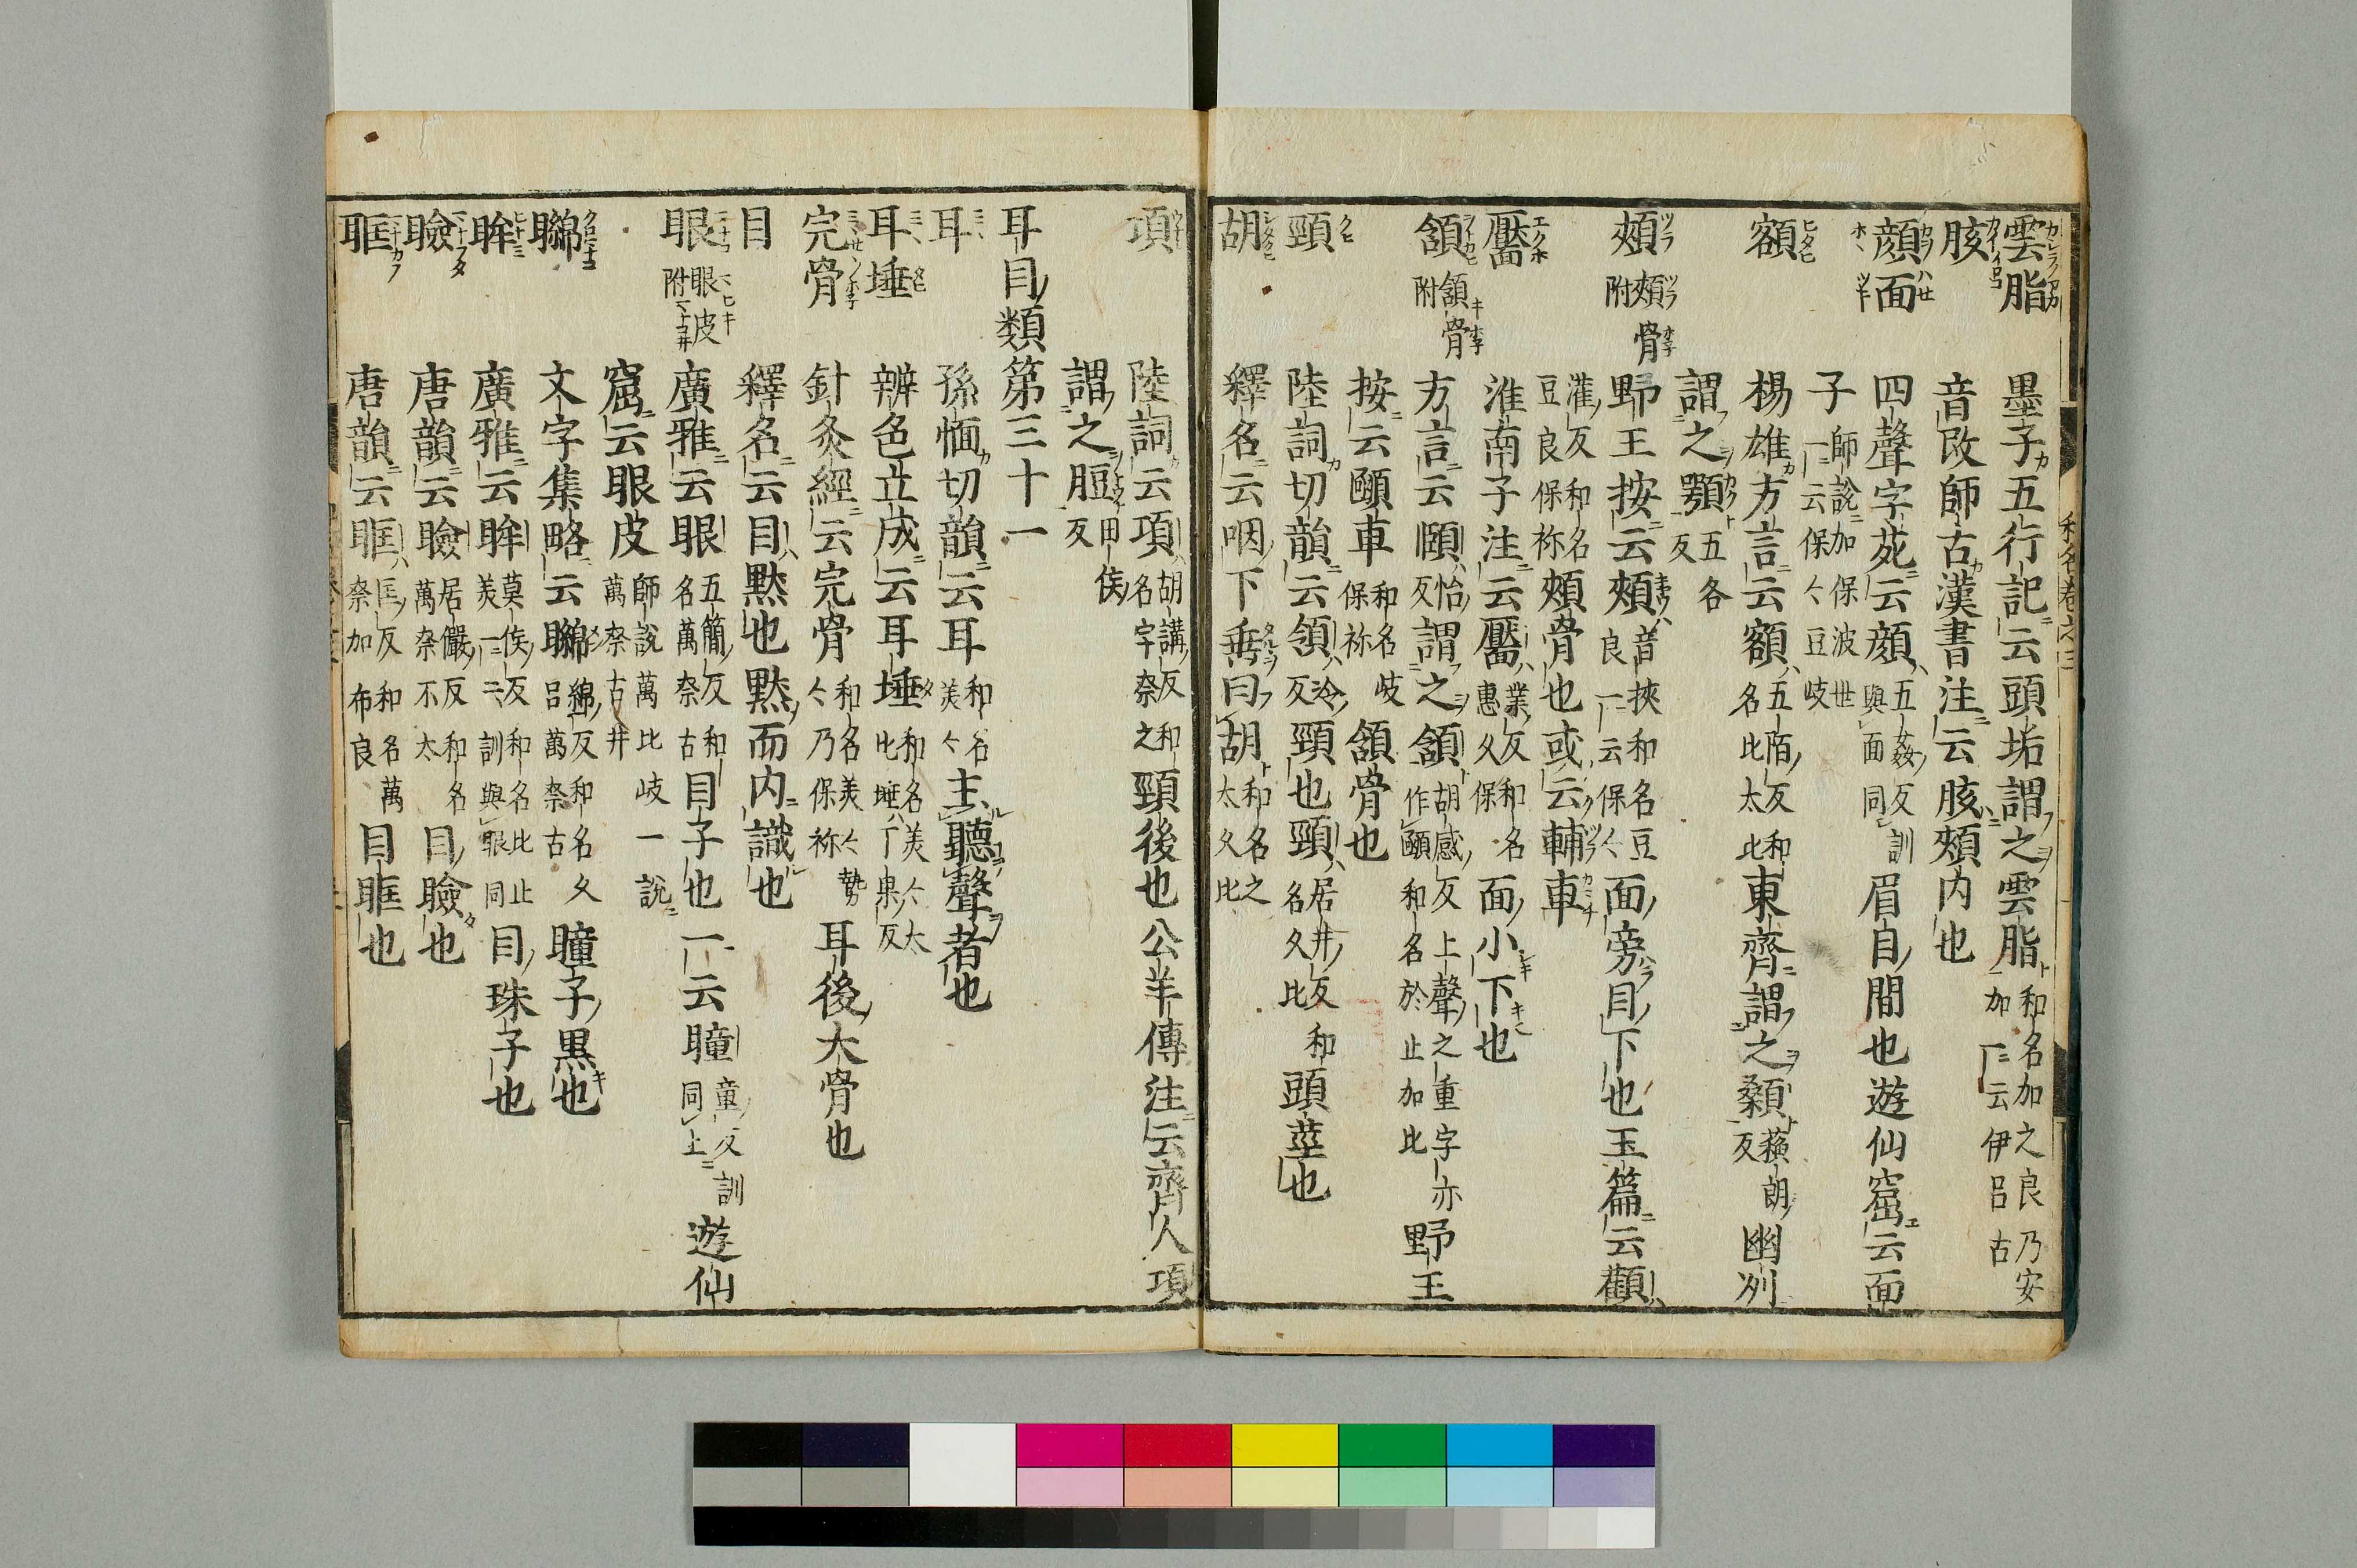 雲脂 墨子五行記云頭垢謂之雲脂 和名加之良乃安加一云伊呂古
胲 音改師古漢書注云胲頰内也
顔面 四聲字苑云顔 五姦反訓與面同 眉目間也遊仙窟云面
子 師説加保波世一云保々豆岐
額 楊雄方言云額 五陌反和名比太比 東齊謂之顙 蘓朗反 幽州
謂之顎 五各反
頰 頰骨附 野王按云頰 音挾和名豆良一云保々 面旁目下也玉篇云顴
灌反和名豆良保祢 頰骨也或云輔車
靨 淮南子注云靨 業反和名惠久保 面小下也
頷 頷骨附 方言云頤 怡反 謂之頷 胡感反上聲之重字亦作頥和名於止加比 野王
按云頥車 和名岐保祢 頷骨也
頸 陸詞切韻云領 冷反 頸也頸 居井反和名久比 頭莖也
胡 釋名云咽下垂曰胡 和名之太久比
項 陸詞云項 胡講反和名宇奈之 頸後也公羊傳注云齊人項
謂之脰 田侯反
耳目類第三十一
耳 孫愐切韻云耳 和名美々 主聽聲者也
耳埵 辨色立成云耳埵 和名美々太比埵丁果反
完骨 針灸經云完骨 和名美々勢々乃保祢 耳後大骨也
目 釋名云目黙也黙而内識也
眼 眼皮附 廣雅云眼 五簡反和名萬奈古 目子也一云瞳 童反訓同上 遊仙
窟云眼皮 師説萬比岐一説萬奈古井
矊 文字集略云矊 綿反和名久呂萬奈古 瞳子黒也
眸 廣雅云眸 莫侯反和名比止美一云訓與眼同 目珠子也
瞼 唐韻云瞼 居儼反和名萬奈不太 目瞼也
眶 唐韻云眶 匡反和名萬奈加布良 目眶也